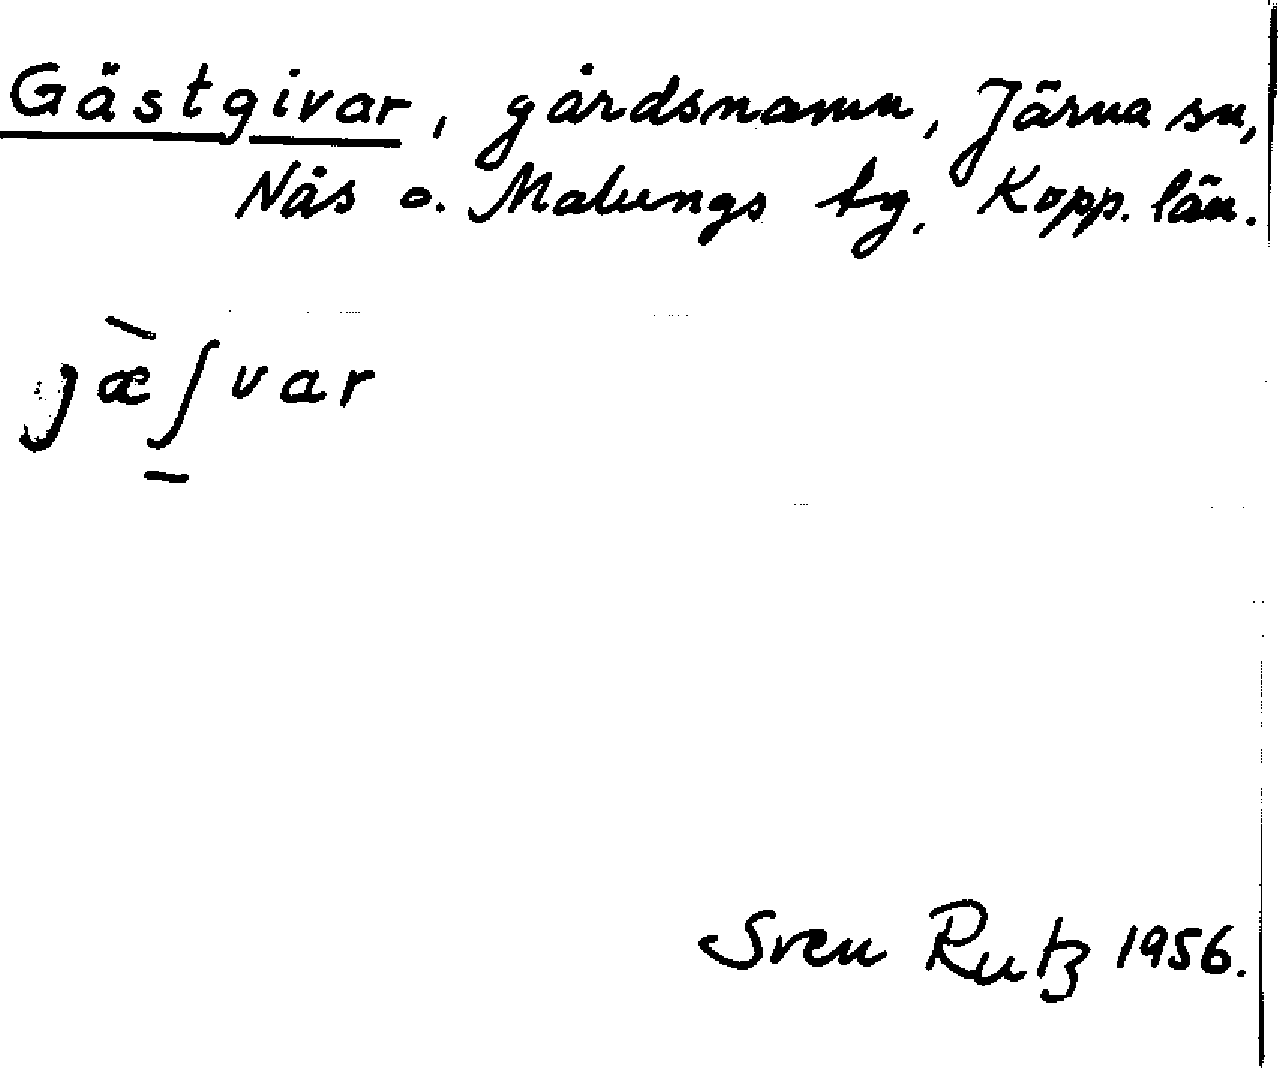 Gästgivar, gårdsnamn, Järna sn,
Nås o. Malungs tg, Kopp. län.
jæ̀ʃ̠var
Sven Rutz 1956.